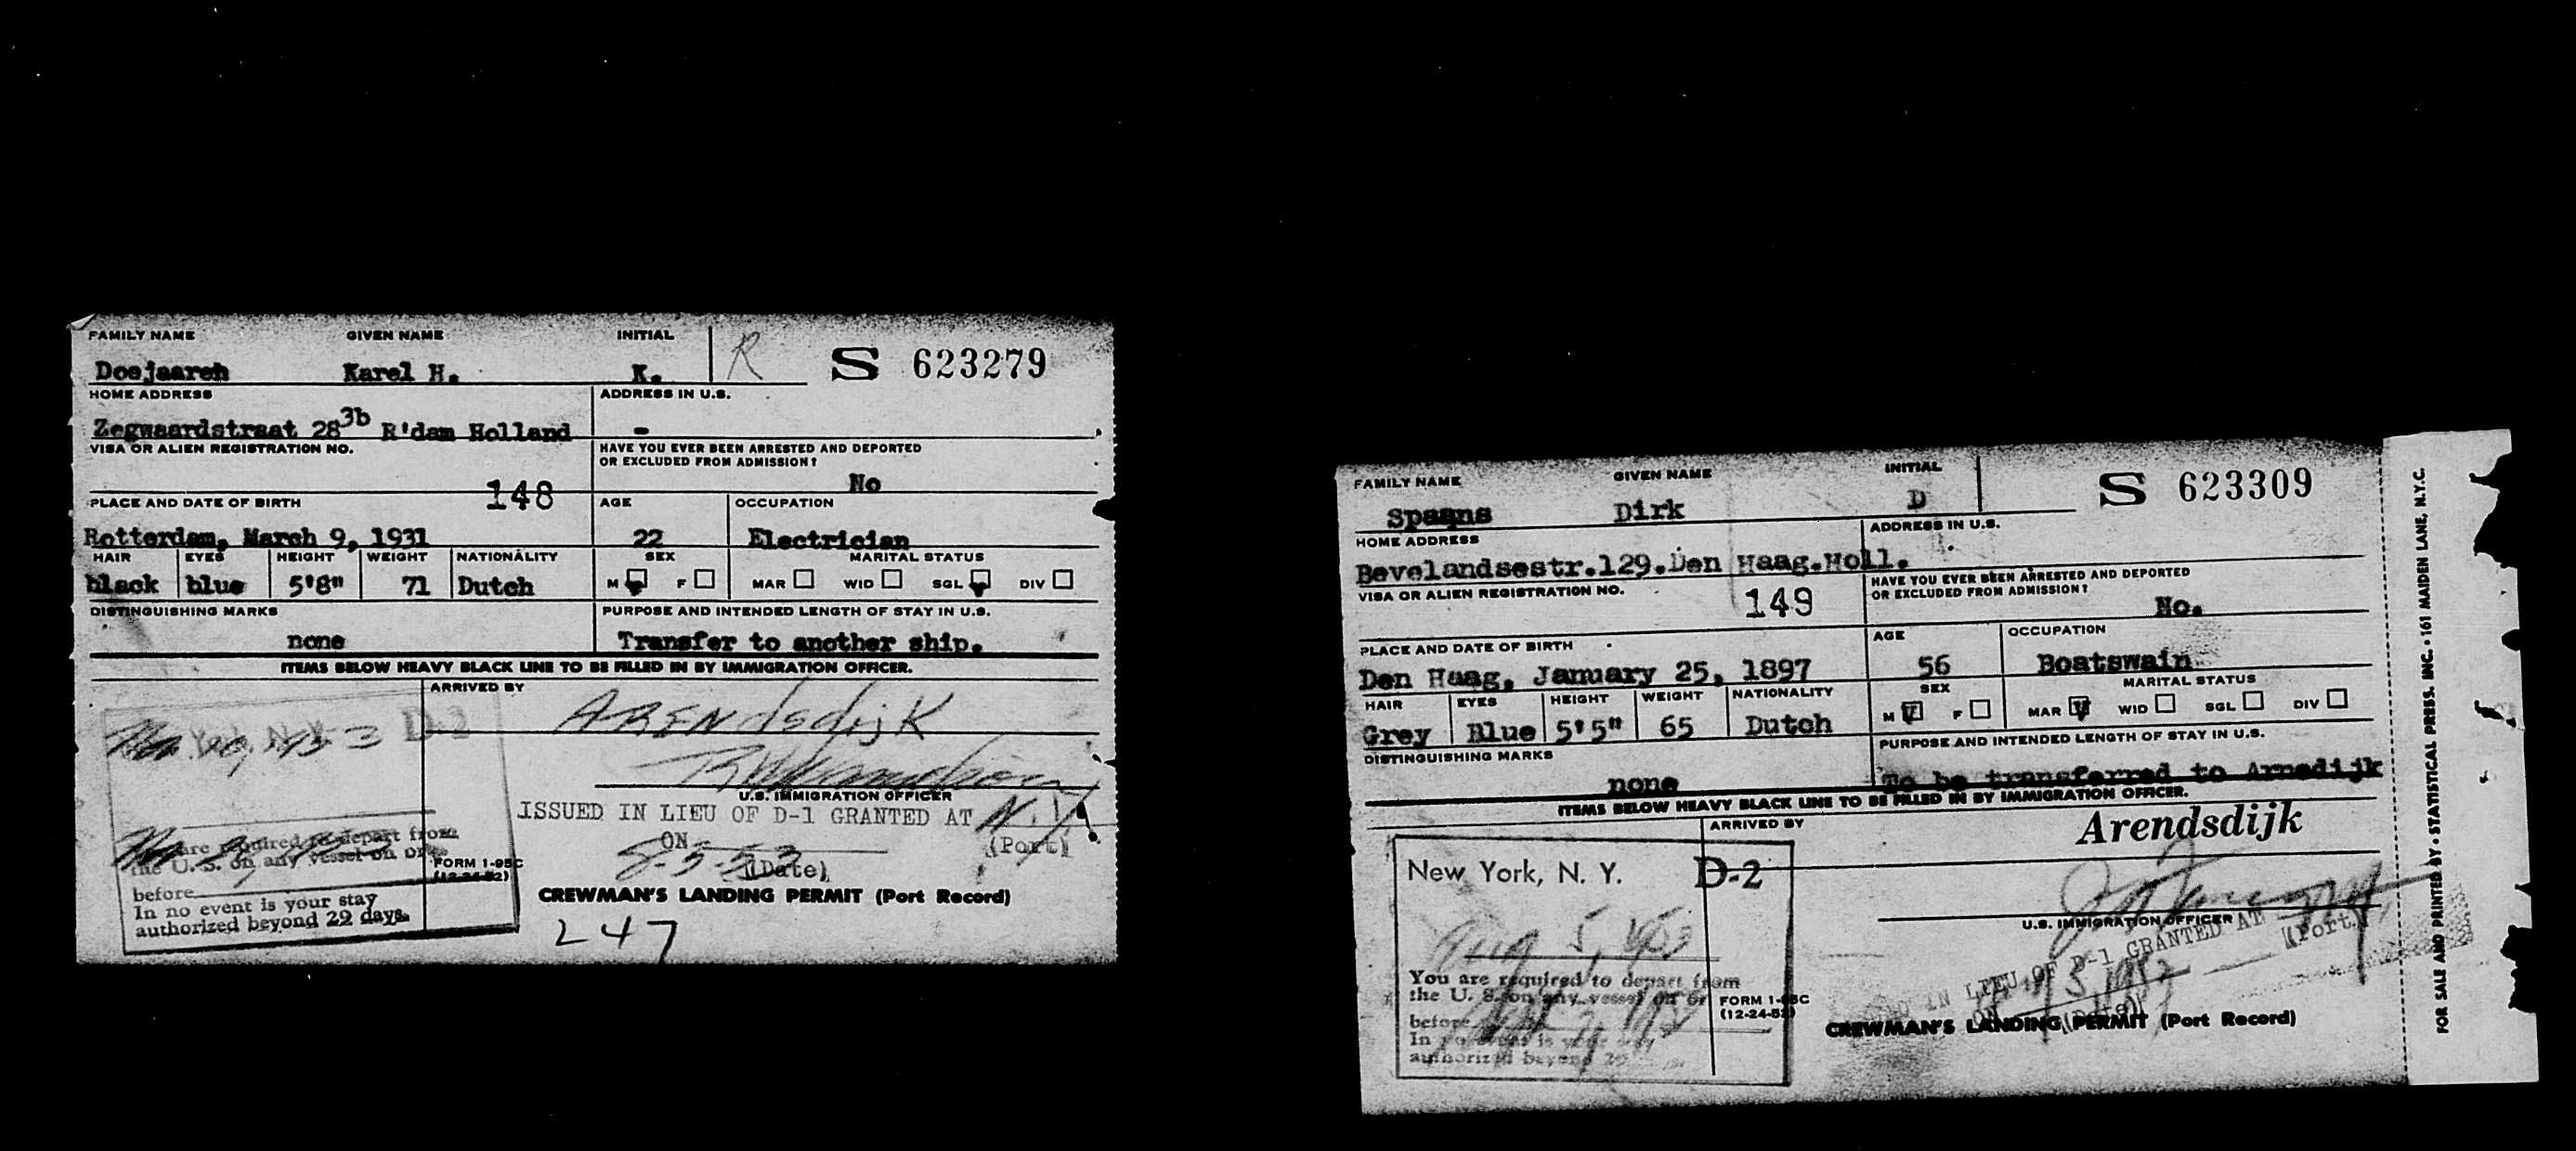 FAMILY NAME GIVEN NAME INITIAL
Doejaaren Karel H. K. R S 623279
HOME ADDRESS ADDRESS IN U.S.
Zegwaardstraat 28 3b R'dam Holland -
VISA OR ALIEN REGISTRATION NO. HAVE YOU EVER BEEN ARRESTED AND DEPORTED
OR EXCLUDED FROM ADMISSION?
148 No
PLACE AND DATE OF BIRTH AGE OCCUPATION
Rotterdam, March 9, 1931 22 Electrician
HAIR EYES HEIGHT WEIGHT NATIONALITY SEX MARITAL STATUS
black blue 5'8" 71 Dutch M F MAR WID SGL DIV
DISTINGUISHING MARKS PURPOSE AND INTENDED LENGTH OF STAY IN U.S.
none Transfer to another ship.
ITEMS BELOW HEAVY BLACK LINE TO BE FILLED IN BY IMMIGRATION OFFICER.
ARRIVED BY
ARENdsdijK
D-2
U.S. IMMIGRATION OFFICER
ISSUED IN LIEU OF D-1 GRANTED AT N.Y
(Port)
ON 8-5-53
(Date)
are required to depart from
the U. S. on any vessel on or
before
In no event is your stay
authorized beyond 29 days.
FORM I-95C
(12-24-52)
CREWMAN'S LANDING PERMIT (Port Record)
247
FAMILY NAME GIVEN NAME INITIAL
Spaans Dirk D S 623309
HOME ADDRESS ADDRESS IN U.S.
Bevelandsestr.129.Den Haag.Holl.
VISA OR ALIEN REGISTRATION NO. HAVE YOU EVER BEEN ARRESTED AND DEPORTED
OR EXCLUDED FROM ADMISSION?
149 No.
PLACE AND DATE OF BIRTH AGE OCCUPATION
Den Haag, January 25, 1897 56 Boatswain
HAIR EYES HEIGHT WEIGHT NATIONALITY SEX MARITAL STATUS
Grey Blue 5'5" 65 Dutch M F MAR WID SGL DIV
DISTINGUISHING MARKS PURPOSE AND INTENDED LENGTH OF STAY IN U.S.
none To be transferred to Arnedijk
ITEMS BELOW HEAVY BLACK LINE TO BE FILLED IN BY IMMIGRATION OFFICER.
ARRIVED BY
Arendsdijk
New York, N. Y. D-2
Aug 5, 1953
U.S. IMMIGRATION OFFICER
IN LIEU OF D-1 GRANTED AT
(Port)
ON
(Date)
You are required to depart from
the U. S. on any vessel on or
before
In no event is your stay
authorized beyond 29
FORM I-95C
(12-24-52)
CREWMAN'S LANDING PERMIT (Port Record)
FOR SALE AND PRINTED BY • STATISTICAL PRESS. INC. • 161 MAIDEN LANE, N.Y.C.